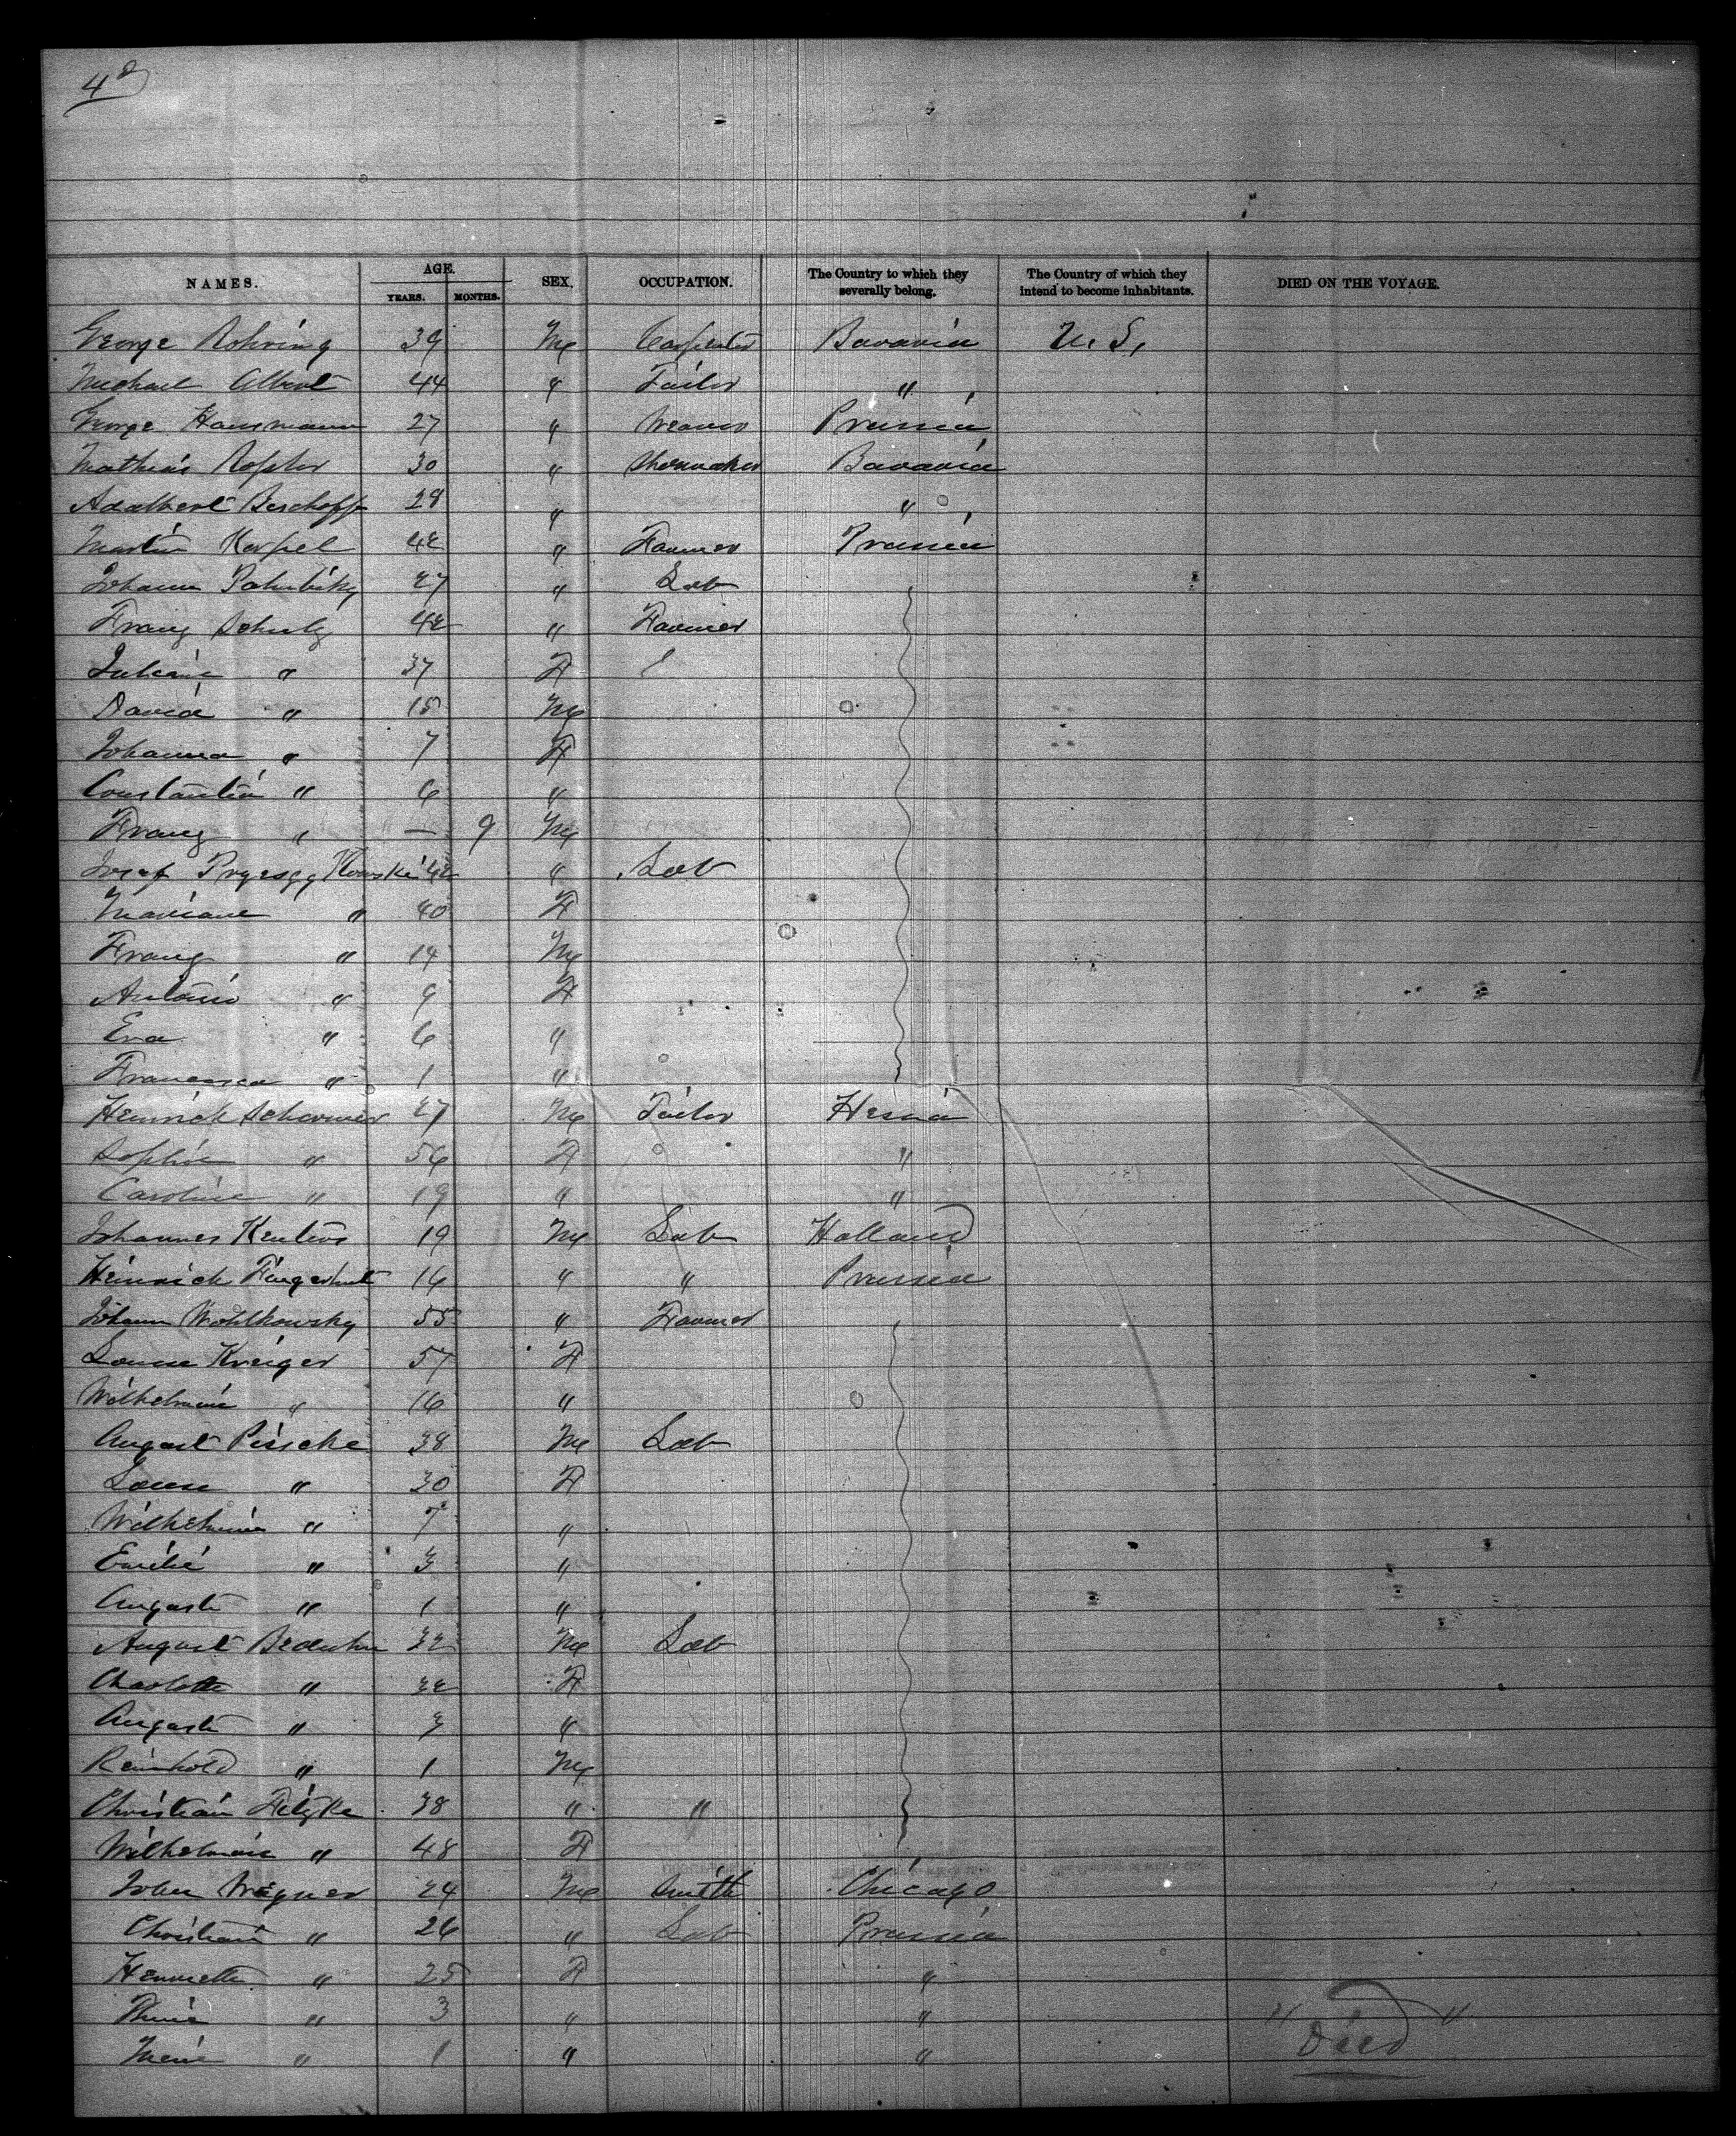 4
NAMES. AGE. YEARS. MONTHS. SEX. OCCUPATION. The Country to which they severally belong. The Country of which they intend to become inhabitants. DIED ON THE VOYAGE.
George Rohring 39 M Carpenter Bavaria U.S.
Michael Albert 44 " Tailor "
George Hausmann 27 " Weaver Prussia
Mathias 30 " Shoemaker Bavaria
Adalbert Bischoff 28 " "
Martin Karpel 42 " Farmer Prussia
Johann 27 " Lab
Franz Schulz 42 " Farmer
Juliane " 37 F
David " 15 M
Johanna " 7 F
Constantia " 6 "
Franz " — 9 M
Josef 42 " Lab
Mariane " 40 F
Franz " 14 M
Antonio " 9 F
Eva " 6 "
Francisca " 1 "
Heinrich 27 M Tailor Hesia
Sophie " 56 F "
Caroline " 19 " "
Johannes 19 M Lab Holland
Heinrich Fingerhut 16 " " Prussia
Johann Wohlkowsky 55 " Farmer
Louise Kreiger 57 F
Wilhelmine " 16 "
August Piescke 38 M Lab
Louise " 30 F
Wilhelmine " 7 "
Emilie " 3 "
Auguste " 1 "
August 32 M Lab
Charlotte " 32 F
Auguste " 3 "
Reinhold " 1 M
Christian 38 " "
Wilhelmine " 48 F
John Wegner 24 M Smith Chicago
Christian " 26 " Lab Prussia
Henriette " 25 F "
" 3 " " " "
" 1 " " Died